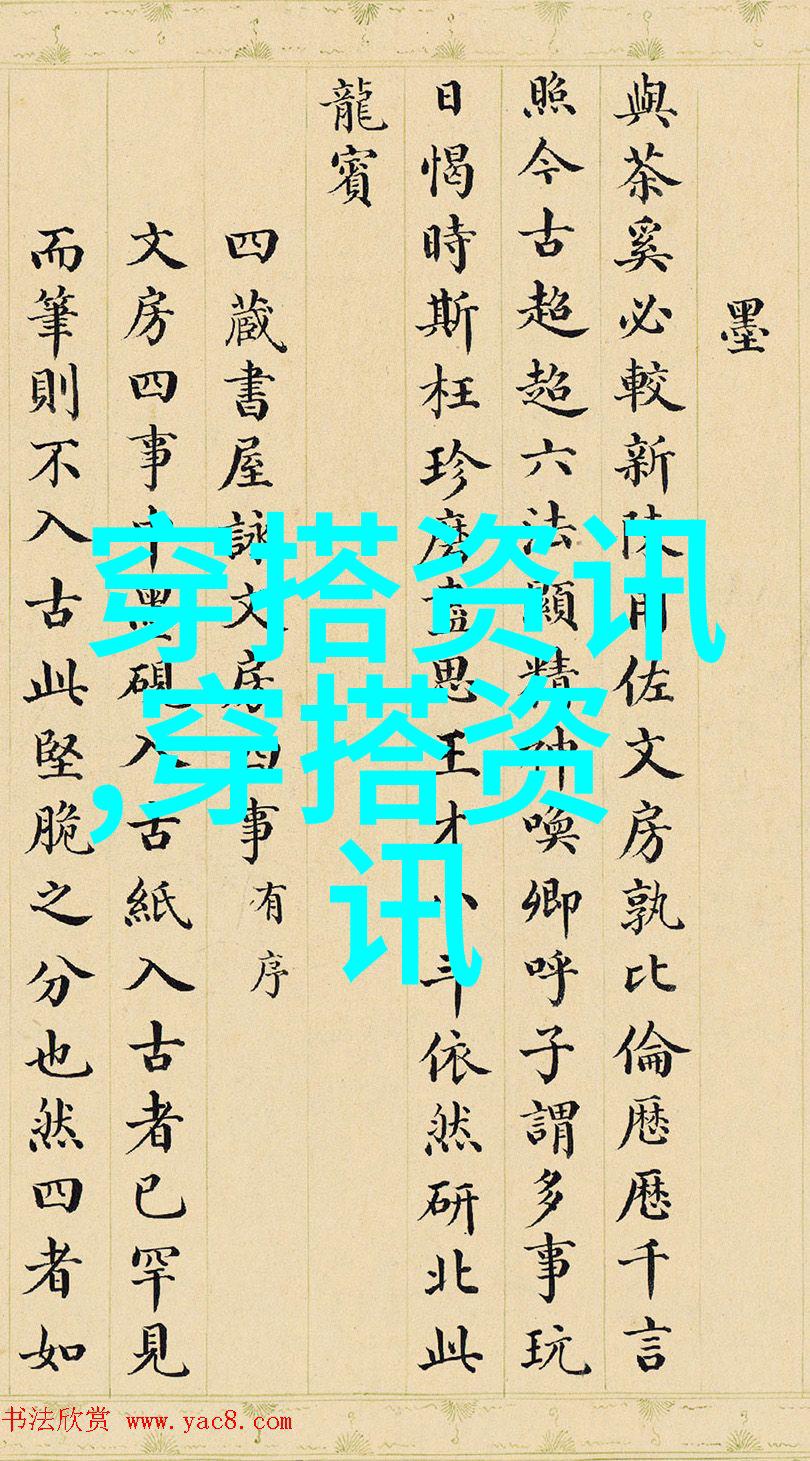 墨
與茶奚必較新陳用佐文房孰比倫歷歷千言
照今古超超六法顯精神喚卿呼子謂多事玩
日愒時斯枉珍磨盡思王才八斗依然研北此
龍賓
四蔵書屋詠文房四事有序
文房四事中墨硯入古紙入古者已罕見
而筆則不入古此堅脆之分也然四者如
穿搭资讯
,穿搭资
讯
书法欣赏 www.yac8.com